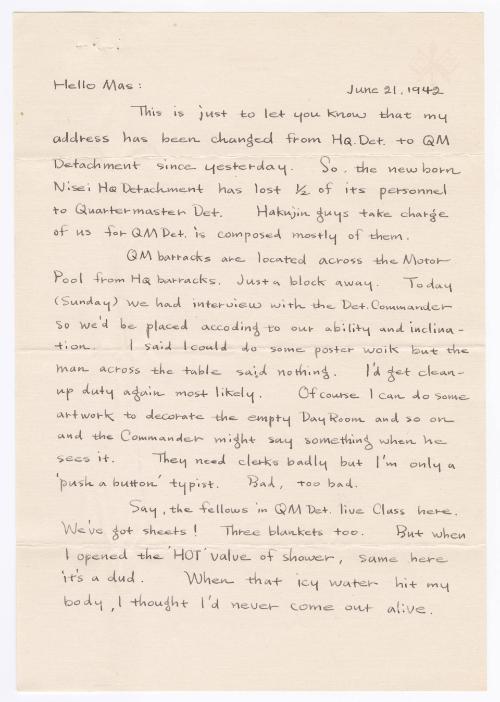 Hello Mas:
June 21, 1942
This is just to let you know that my
address has been changed from HQ. Det. to QM
Detachment since yesterday. So, the new born
Nisei HQ Detachment has lost ½ of its personnel
to Quartermaster Det. Hakujin guys take charge
of us for QM Det. is composed mostly of them.
QM barracks are located across the Motor
Pool from HQ barracks. Just a block away. Today
(Sunday) we had interview with the Det. Commander
so we'd be placed accoding to our ability and inclina-
tion. I said I could do some poster work but the
man across the table said nothing. I'd get clean-
up duty again most likely. Of course I can do some
artwork to decorate the empty Day Room and so on
and the Commander might say something when he
sees it. They need clerks badly but I'm only a
'push a button' typist. Bad, too bad.
Say, the fellows in QM Det. live Class here.
We've got sheets! Three blankets too. But when
I opened the 'HOT' value of shower, same here
it's a dud. When that icy water hit my
body, I thought I'd never come out alive.